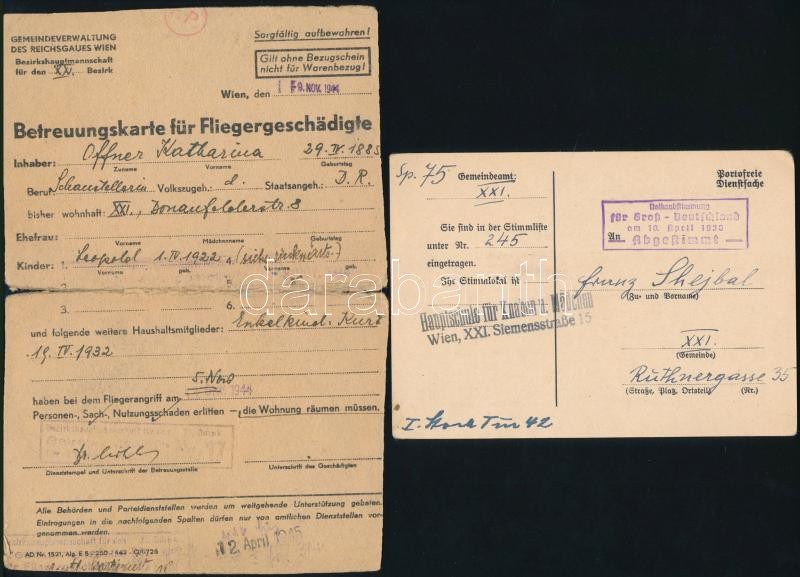 GEMEINDEVERWALTUNG
DES REICHSGAUES WIEN
Bezirkshauptmannschaft
für den XXI. Bezirk
Sorgfältig aufbewahren!
Gilt ohne Bezugschein
nicht für Warenbezug!
Wien, den 9. NOV. 1944
Betreuungskarte für Fliegergeschädigte
Inhaber: Offner Katharina 29. IV. 1885
Zuname Vorname Geburtstag
Beruf Schaustellerin Volkszugeh. d. Staatsangeh. D. R.
bisher wohnhaft: XXI., Donaufelderstr. 8
Ehefrau:
Vorname Mädchenname Geburtstag
Kinder: 1. Leopold 1. IV. 1922 4. (siehe rückwärts.)
Vorname geb. Vorname geb.
3. 6.
und folgende weitere Haushaltsmitglieder: Enkelkind: Kurt
19. IV. 1932
5. Nov. 1944
haben bei dem Fliegerangriff am
Personen-, Sach-, Nutzungsschaden erlitten – die Wohnung räumen müssen.
Dienststempel und Unterschrift der Betreuungsstelle Unterschrift des Geschädigten
Alle Behörden und Parteidienststellen werden um weitgehende Unterstützung gebeten.
Eintragungen in die nachfolgenden Spalten dürfen nur von amtlichen Dienststellen vor-
genommen werden.
12. April 1945
AD. Nr. 1521, Alp. E
Sp. 75 Gemeindeamt:
XXI.
Sie sind in der Stimmliste
unter Nr. 245
eingetragen.
Ihr Stimmlokal ist
Hauptschule für Knaben u. Mädchen
Wien, XXI. Siemensstraße 15
I. Stock Tür 42
Portofreie
Dienstsache
Volksabstimmung
für Groß-Deutschland
am 10. April 1938
Abgestimmt
An
Franz Shejbal
(Zu- und Vorname)
XXI.
(Gemeinde)
Ruthnergasse 35
(Straße, Platz, Ortsteil) (Nr.)
darabanth